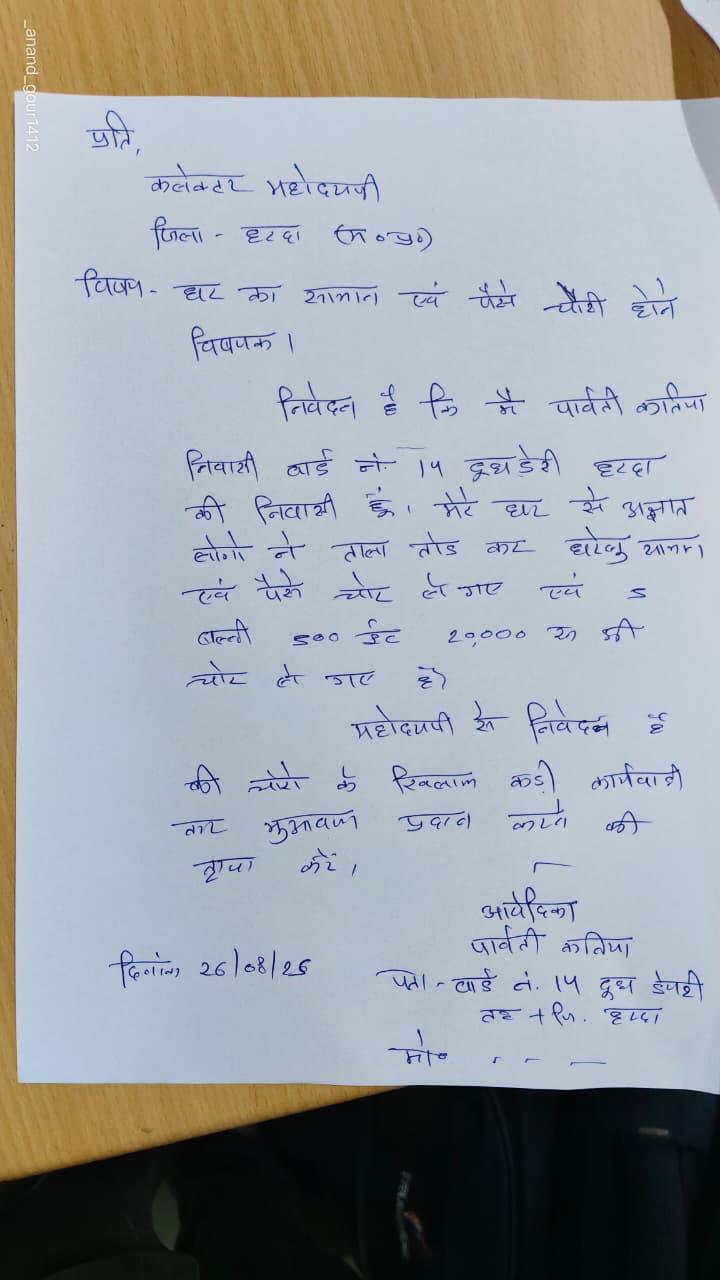 _anand_gour1412
प्रति,
कलेक्टर महोदयजी
जिला - हरदा (म०प्र०)
विषय - घर का सामान एवं पैसे चोरी होने
विषयक ।
निवेदन है कि मै पार्वती कतिया
निवासी वार्ड नं. 14 दूध डेरी हरदा
की निवासी हूं। मेरे घर से अज्ञात
लोगो ने ताला तोड कर घरेलु सामान
एवं पैसे चोर ले गए एवं 5
बल्ली 500 ईट 20,000 रू भी
चोर ले गए है।
महोदयजी से निवेदन है
की चोरो के खिलाफ कड़ी कार्यवाही
कर मुआवजा प्रदान करने की
कृपा करें।
आवेदिका
पार्वती कतिया
दिनांक 26/08/25
पता - वार्ड नं. 14 दूध डेयरी
तह + जि. हरदा
मो०